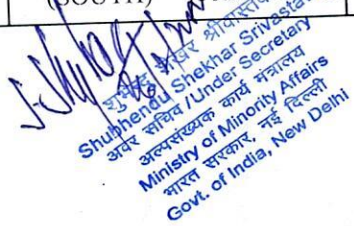 (SOUTH)
शुभेन्दु शेखर श्रीवास्तव
Shubhendu Shekhar Srivastava
अवर सचिव / Under Secretary
अल्पसंख्यक कार्य मंत्रालय
Ministry of Minority Affairs
भारत सरकार, नई दिल्ली
Govt. of India, New Delhi